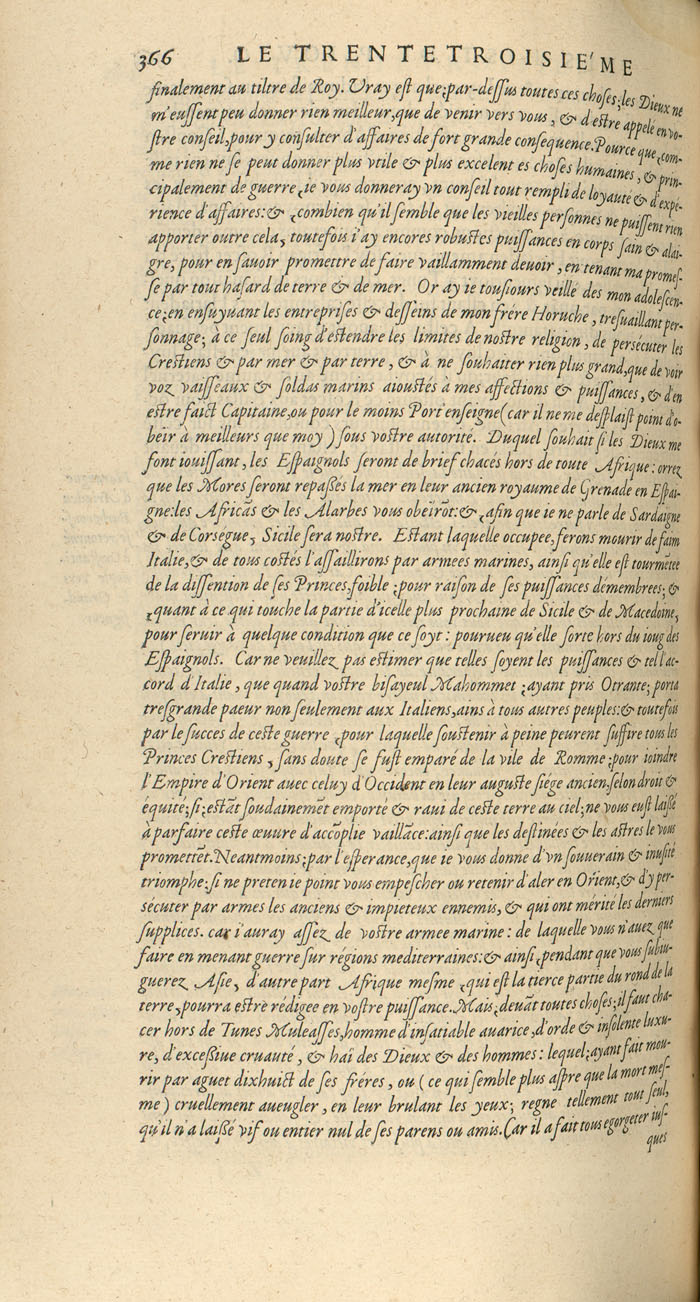 366 LE TRENTETROISIE'ME
finalement au tiltre de Roy. Vray est que;par-dessus toutes ces choses;les Dieux ne
m'eussent peu donner rien meilleur,que de venir vers vous, & d'estre appelé en vo-
stre conseil,pour y consulter d'affaires de fort grande consequence.Pource que,com-
me rien ne se peut donner plus vtile & plus excelent es choses humaines, & prin-
cipalement de guerre,ie vous donneray vn conseil tout rempli de loyauté & d'expe-
rience d'affaires:& ,combien qu'il semble que les vieilles personnes ne puissent rien
apporter outre cela, toutefois i'ay encores robustes puissances en corps sain & alai-
gre, pour en sauoir promettre de faire vaillamment deuoir, en tenant ma promes-
se par tout hasard de terre & de mer. Or ay ie tousiours veillé des mon adolescen-
ce;en ensuyuant les entreprises & desseins de mon frére Horuche, tresuaillant per-
sonnage; à ce seul soing d'estendre les limites de nostre religion, de persécuter les
Crestiens & par mer & par terre, & à ne souhaiter rien plus grand,que de voir
voz vaisseaux & soldas marins aioustés à mes affections & puissances, & d'en
estre faict Capitaine,ou pour le moins Port'enseigne(car il ne me desplaist point d'o-
beïr à meilleurs que moy) sous vostre autorité. Duquel souhait si les Dieux me
font iouissant, les Espaignols seront de brief chacés hors de toute Afrique: orrez
que les Mores seront repassés la mer en leur ancien royaume de Grenade en Espai-
gne:les Africãs & les Alarbes vous obeïrõt:& ,afin que ie ne parle de Sardaigne
& de Corsegue, Sicile sera nostre. Estant laquelle occupee,ferons mourir de faim
Italie,& de tous costés l'assaillirons par armees marines, ainsi qu'elle est tourmẽtee
de la dissention de ses Princes,foible ;pour raison de ses puissances démembrees;&
,quant à ce qui touche la partie d'icelle plus prochaine de Sicile & de Macedoine,
pour seruir à quelque condition que ce soyt: pourueu qu'elle sorte hors du ioug des
Espaignols. Car ne veuillez pas estimer que telles soyent les puissances & tel l'ac-
cord d'Italie, que quand vostre bisayeul Mahommet ;ayant pris Otrante; porta
tresgrande paeur non seulement aux Italiens,ains à tous autres peuples:& toutefois
par le succes de ceste guerre ,pour laquelle soustenir à peine peurent suffire tous les
Princes Crestiens, sans doute se fust emparé de la vile de Romme;pour ioindre
l'Empire d'Orient auec celuy d'Occident en leur auguste siége ancien,selon droit &
équité;si;estãt soudainemẽt emporté & raui de ceste terre au ciel;ne vous eust laissé
à parfaire ceste œuure d'accõplie vaillãce:ainsi que les destinées & les astres le vous
promettẽt.Neantmoins;par l'esperance,que ie vous donne d'vn souuerain & inusité
triomphe:si ne preten ie point vous empescher ou retenir d'aler en Orient,& d'y per-
sécuter par armes les anciens & impieteux ennemis, & qui ont mérité les derniers
supplices. car i'auray assez de vostre armee marine: de laquelle vous n'auez que
faire en menant guerre sur régions mediterraines:& ainsi ,pendant que vous subiu-
guerez Asie, d'autre part Afrique mesme ,qui est la tierce partie du rond de la
terre,pourra estre rédigee en vostre puissance.Mais;deuãt toutes choses;il faut cha-
cer hors de Tunes Muleasses,homme d'insatiable auarice,d'orde & insolente luxu-
re, d'excessiue cruauté, & haï des Dieux & des hommes: lequel;ayant fait mou-
rir par aguet dixhuict de ses fréres, ou (ce qui semble plus aspre que la mort mes-
me) cruellement aueugler, en leur brulant les yeux; regne tellement tout seul,
qu'il n'a laissé vif ou entier nul de ses parens ou amis. Car il a fait tous egorgeter ius-
ques